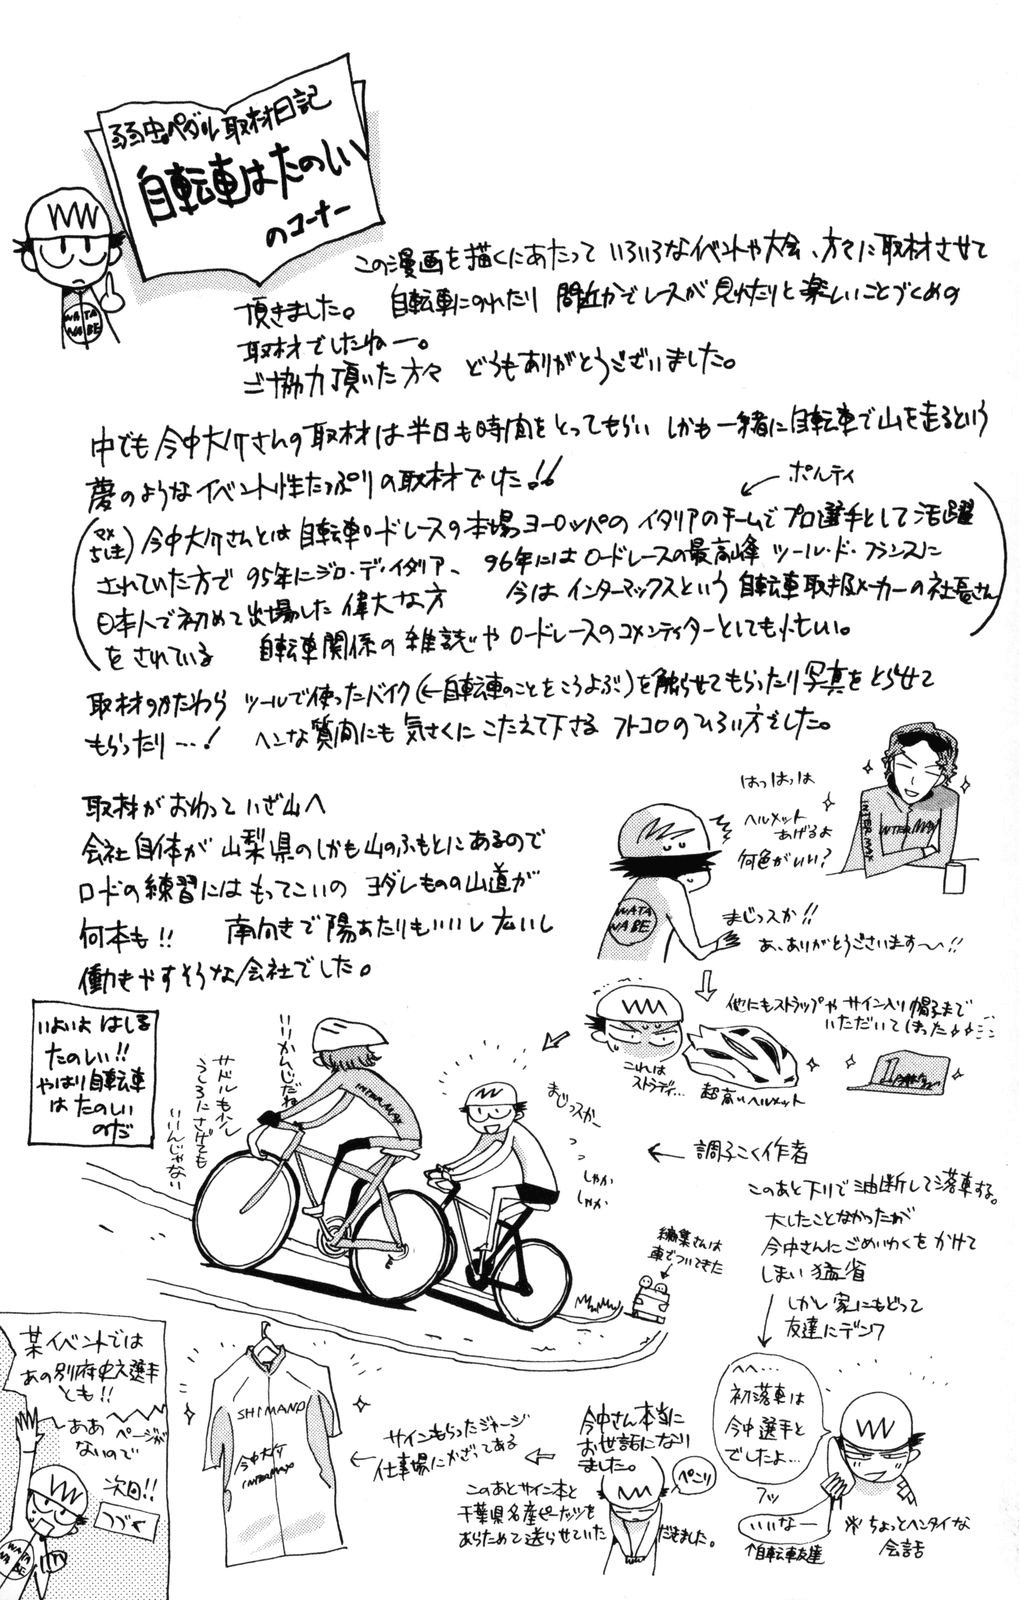 弱虫ペダル取材日記
自転車はたのしい
のコーナー
WATA
NABE
この漫画を描くにあたって いろいろなイベントや大会、方々に取材させて
頂きました。 自転車にのれたり 間近かでレースが見れたりと楽しいことづくめの
取材でしたねー。
ご協力頂いた方々 どうもありがとうございました。
中でも今中大介さんの取材は半日も時間をとってもらい しかも一緒に自転車で山を走るという
夢のようなイベント性たっぷりの取材でした!!
ポルティ
(マメちしき)今中大介さんとは自転車ロードレースの本場ヨーロッパのイタリアのチームでプロ選手として活躍
されていた方で 95年にジロ・デ・イタリア、 96年にはロードレースの最高峰 ツール・ド・フランスに
日本人で初めて出場した偉大な方 今はインターマックスという自転車取扱メーカーの社長さん
をされている 自転車関係の雑誌やロードレースのコメンテイターとしても忙しい。
取材のかたわら ツールで使ったバイク(←自転車のことをこうよぶ)を触らせてもらったり写真をとらせて
もらったり…! ヘンな質問にも気さくにこたえて下さる フトコロのひろい方でした。
はっはっは
ヘルメット
あげるよ
何色がいい?
INTERMAX
INTERMAX
取材がおわって いざ山へ
会社自体が山梨県のしかも山のふもとにあるので
ロードの練習にはもってこいの ヨダレものの山道が
何本も!! 南向きで陽あたりもいいし広いし
働きやすそうな会社でした。
WATA
NABE
まじっスか!!
あ、ありがとうございます〜!!
他にもストラップやサイン入り帽子まで
いただいてしまった
これは
ストラディ…
超高いヘルメット
いよいよ はしる
たのしい!!
やはり自転車
は たのしい
のだ
いいかんじだね
サドルも少し
うしろにさげても
いいんじゃない
INTERMAX
まじっスかー
しゃか
しゃか
← 調子こく作者
このあと下りで油断して落車する。
大したことなかったが
今中さんにごめいわくをかけて
しまい猛省
しかし家にもどって
友達にデンワ
編集さんは
車でついてきた
へへ…
初落車は
今中選手と
でしたよ…
フッ
いいなー
↑自転車友達
※ちょっとヘンタイな
会話
今中さん本当に
お世話になり
ました。
ぺこり
このあとサイン本と
千葉県名産ピーナッツを
あらためて送らせていただきました。
サインもらったジャージ
仕事場にかざってある
SHIMANO
今中大介
INTERMAX
某イベントでは
あの別府史之選手
とも!!
ああ ページが
ないので
次回!!
つづく
WATA
NABE